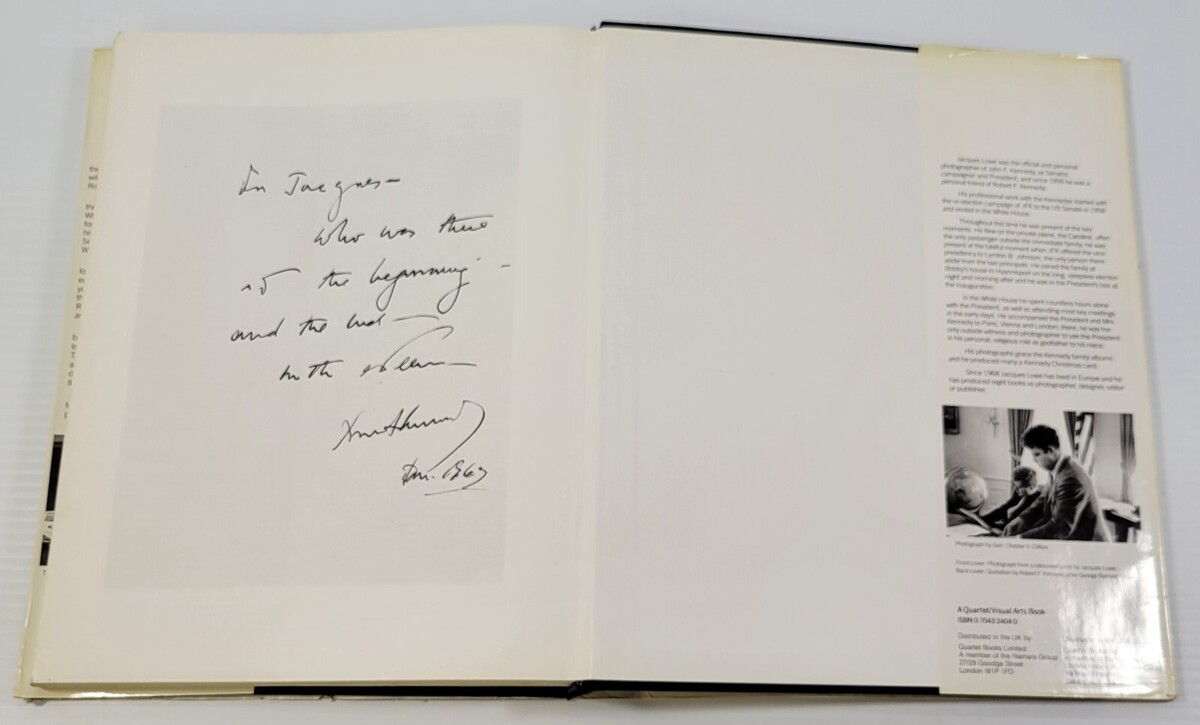 For Jacques—
who was there
at the beginning —
and the end —
with
the
wil
Jacques Lowe was the official and personal
photographer of John F. Kennedy, as Senator,
campaigner and President, and since 1956 he was a
personal friend of Robert F. Kennedy.
His professional work with the Kennedys started with
the re-election campaign of JFK to the US Senate in 1958
and ended in the White House.
Throughout this time he was present at the key
moments. He flew on the private plane, the Caroline, often
the only passenger outside the immediate family; he was
present at the fateful moment when JFK offered the vice-
presidency to Lyndon B. Johnson, the only person there
aside from the two principals. He joined the family at
Bobby's house in Hyannisport on the long, sleepless election
night and morning after and he was in the President's box at
the Inauguration.
In the White House he spent countless hours alone
with the President, as well as attending most key meetings
in the early days. He accompanied the President and Mrs
Kennedy to Paris, Vienna and London; there, he was the
only outside witness and photographer to see the President
in his personal, religious role as godfather to his niece.
His photographs grace the Kennedy family albums
and he produced many a Kennedy Christmas card.
Since 1968 Jacques Lowe has lived in Europe and he
has produced eight books as photographer, designer, editor
or publisher.
Photograph by Gen. Chester V. Clifton
Front cover: Photograph from a
by Jacques Lowe
Back cover: Quotation by Robert F. Kennedy after George Bernard
A Quartet/Visual Arts Book
ISBN 0 7043 2404 0
Distributed in the UK by
Quartet Books Limited
A member of the Namara Group
27/29 Goodge Street
London W1P 1FD